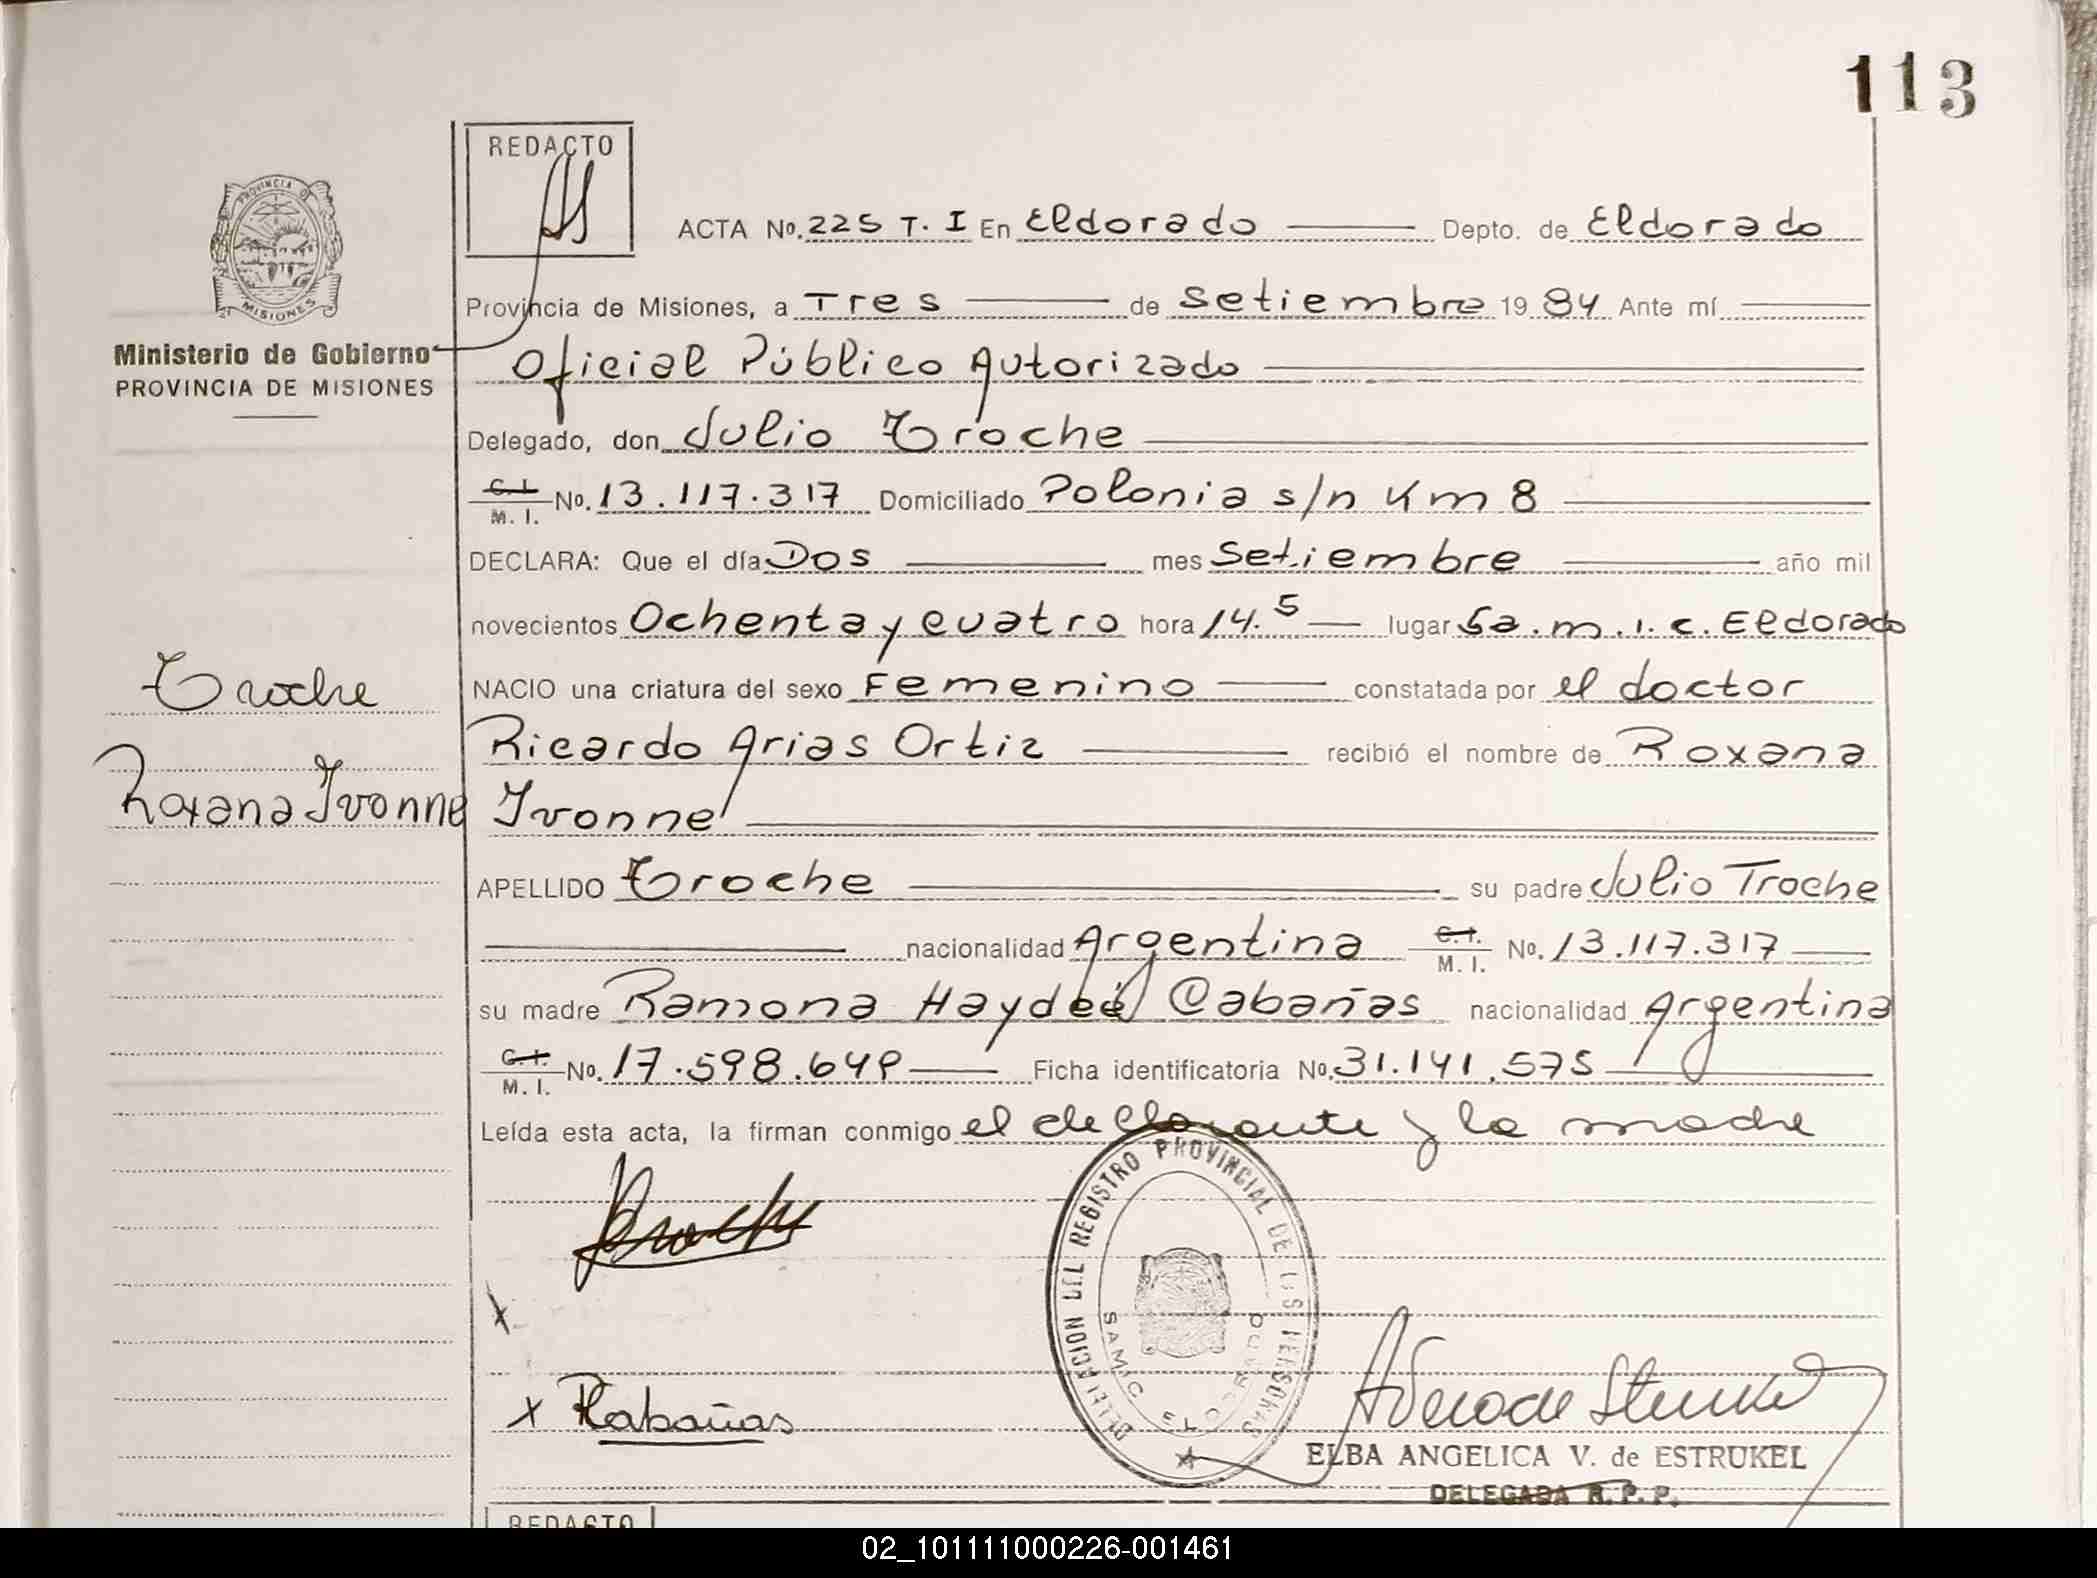 113
REDACTO
PROVINCIA DE
MISIONES
Ministerio de Gobierno
PROVINCIA DE MISIONES
ACTA No. 225 T. I En Eldorado Depto. de Eldorado
Provincia de Misiones, a Tres de Setiembre 19 84 Ante mí
Oficial Público Autorizado
Delegado, don Julio Troche
C. I. M. I. No. 13.117.317 Domiciliado Polonia s/n Km 8
DECLARA: Que el día Dos mes Setiembre año mil
novecientos Ochenta y cuatro hora 14.5 lugar Sa.m.i.c. Eldorado
Troche
NACIO una criatura del sexo Femenino constatada por el doctor
Ricardo Arias Ortiz recibió el nombre de Roxana
Roxana Ivonne
Ivonne
APELLIDO Troche su padre Julio Troche
nacionalidad Argentina C. I. M. I. No. 13.117.317
su madre Ramona Haydeé Cabañas nacionalidad Argentina
C. I. M. I. No. 17.598.649 Ficha identificatoria No. 31.141.575
Leída esta acta, la firman conmigo el declarante y la madre
Troche
x
x RCabañas
DELEGACION DEL REGISTRO PROVINCIAL DE LAS PERSONAS
SAMIC ELDORADO
ELBA ANGELICA V. de ESTRUKEL
DELEGADA R. P. P.
REDACTO
02_101111000226-001461